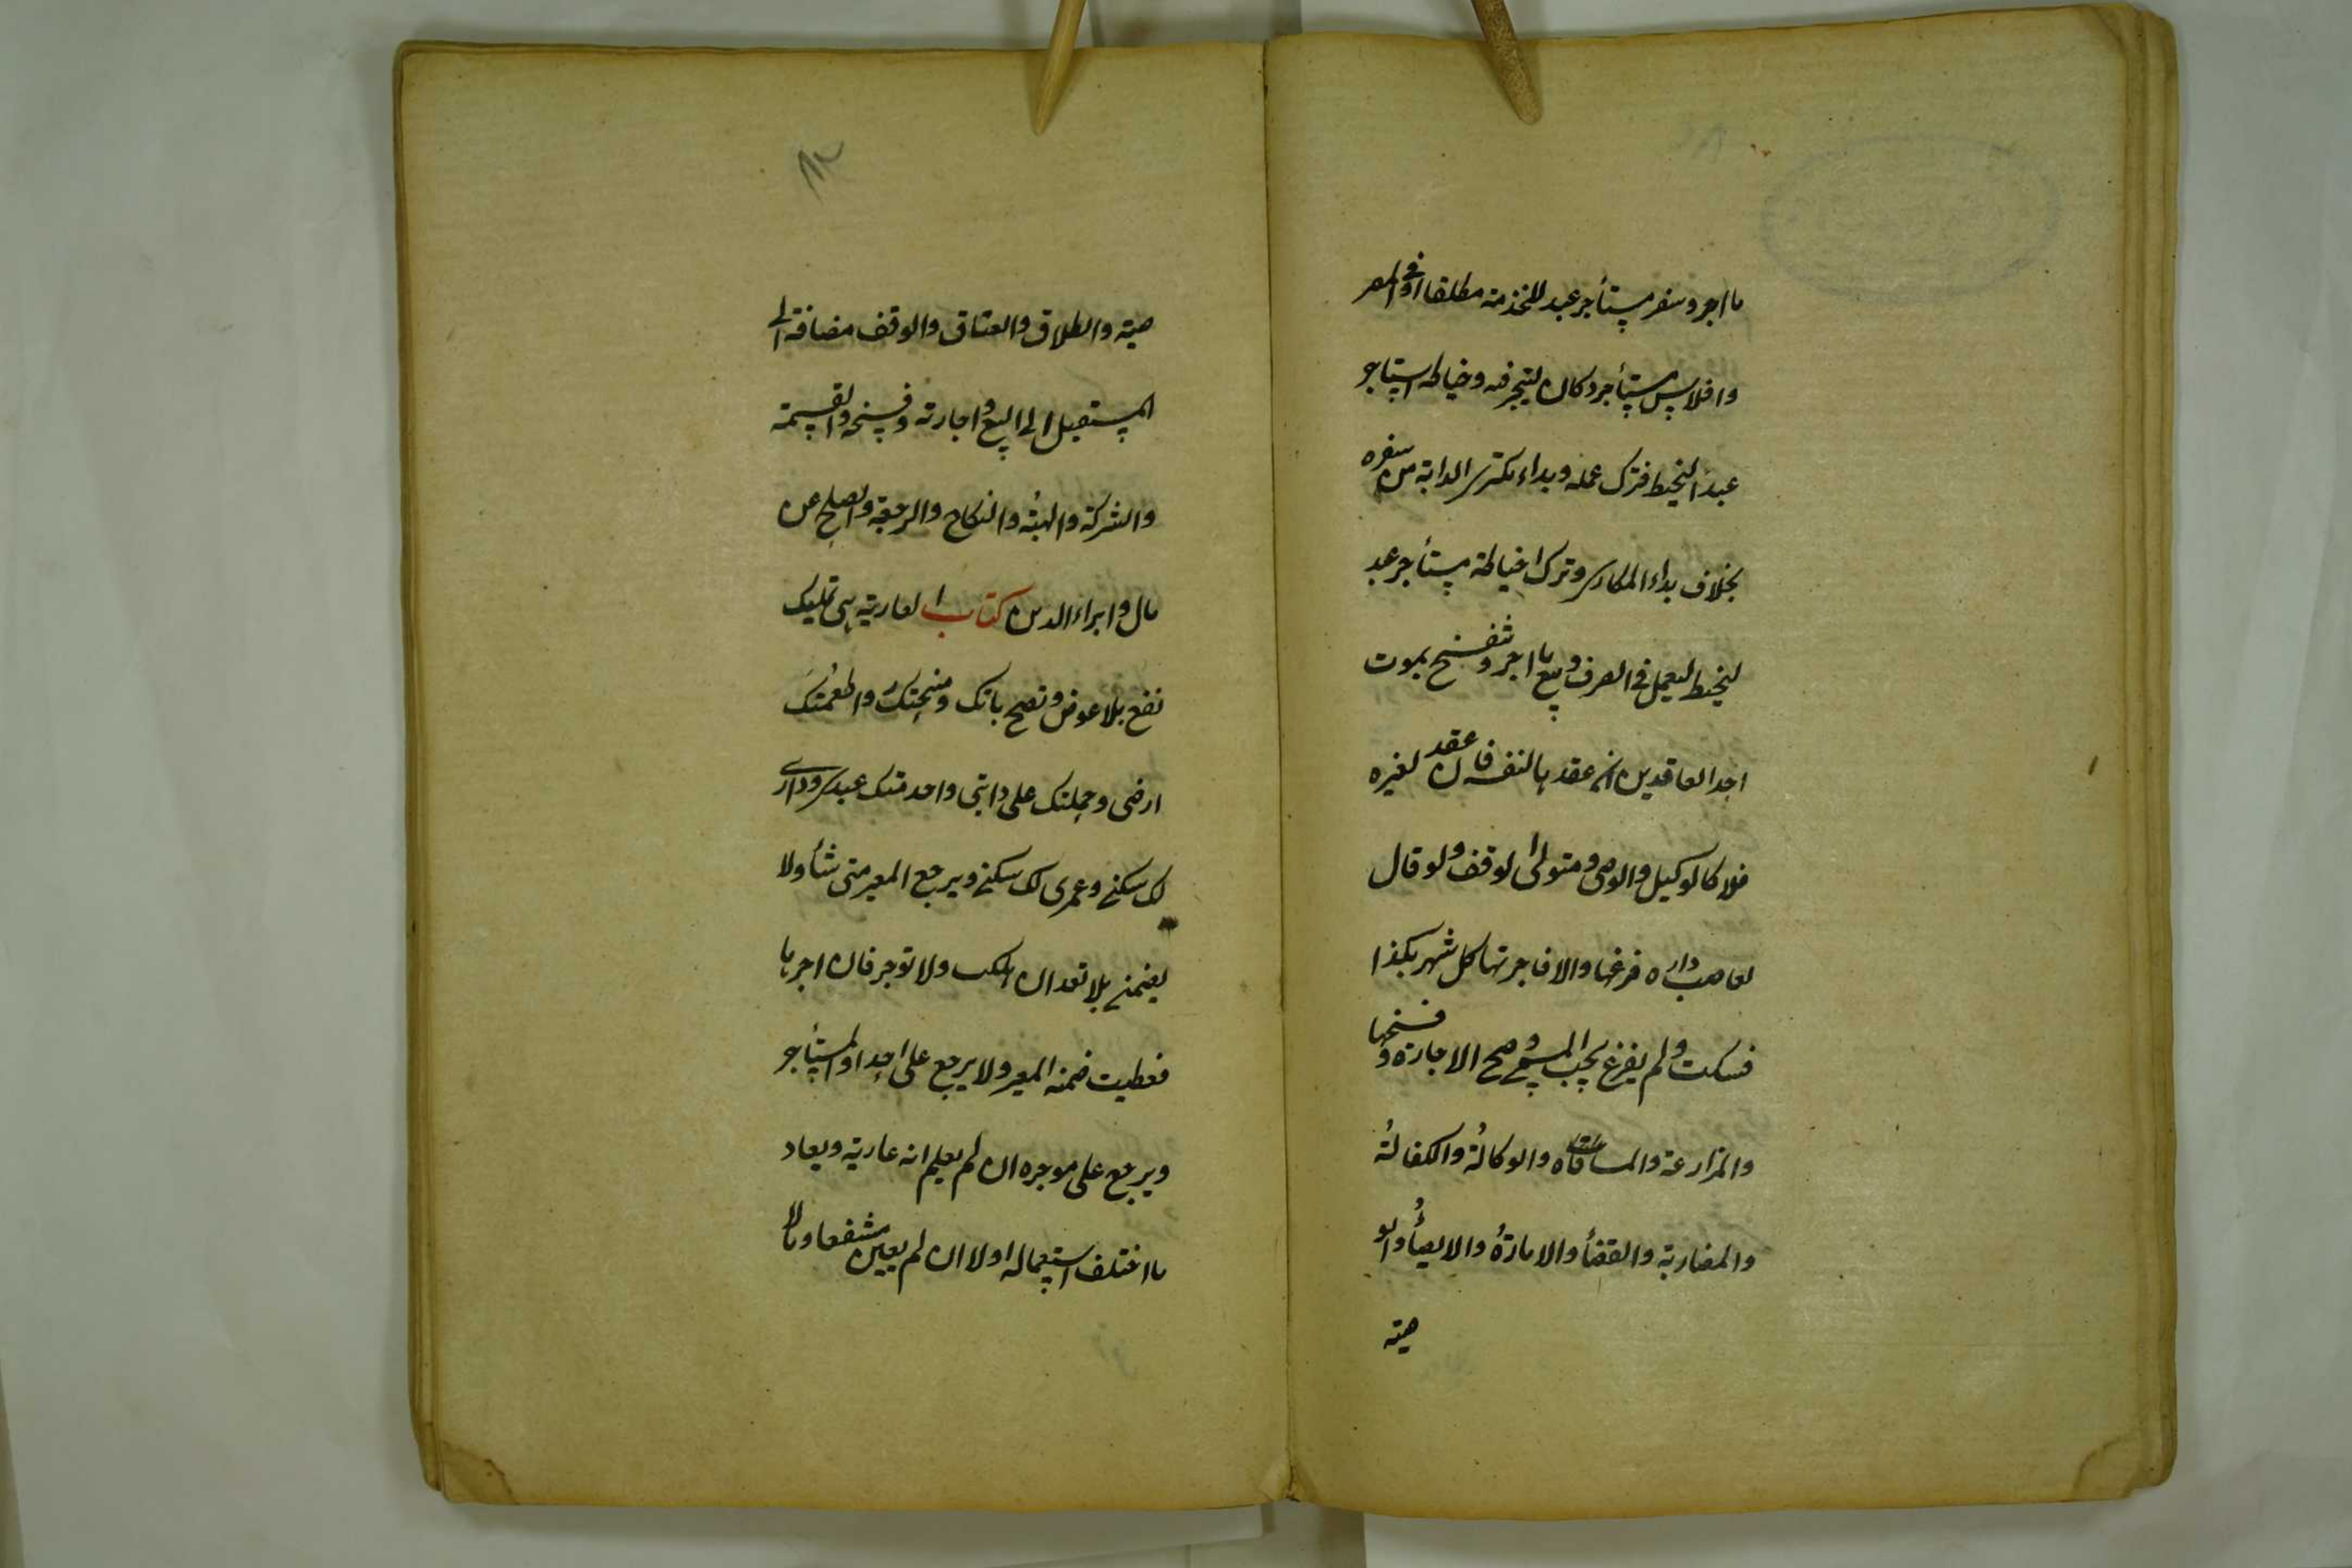 ما اجر وسفر مستأجر عبد للخدمة مطلقا او في المصر
وافلاس مستأجر دكان ليتجر فيه وخياط استاجر
عبدا ليخيط فترك عمله وبداء مكترى الدابة من سفره
بخلاف بداء المكارى وترك خياطة مستأجر عبد
ليخيط ليعمل في الصرف وبيع ما اجر وتنفسخ بموت
احد العاقدين ان عقد ها لنفسه فان عقد لغيره
فلا كالوكيل والوصى ومتولى الوقف ولو قال
لغاصب داره فرغها والا فاجرتها كل شهر بكذا
فسكت ولم يفرغ يجب المسمى وصح الاجارة وفسخها
والمزارعة والمساقاة والوكالة والكفالة
والمضاربة والقضأ والامارة والايصأ والو
صية
صية والطلاق والعتاق والوقف مضافة الى
المستقبل لا البيع واجارته وفسخه والقسمة
والشركة والهبة والنكاح والرجعة والصلح عن
مال وابراء الدين كتاب العارية هى تمليك
نفع بلا عوض وتصح باتك ومنحتك واطعمتك
ارضى وحملتك على دابتى واخدمتك عبدى ودارى
لك سكنى وعمرى لك سكنى ويرجع المعير متى شأ ولا
يضمن بلا تعد ان هلكت ولا توجر فان اجرها
فعطبت ضمنه المعير ولا يرجع على احد او المستأجر
ويرجع على موجره ان لم يعلم انه عارية ويعار
ما اختلف استعماله اولا ان لم يعين منتفعا وما لا